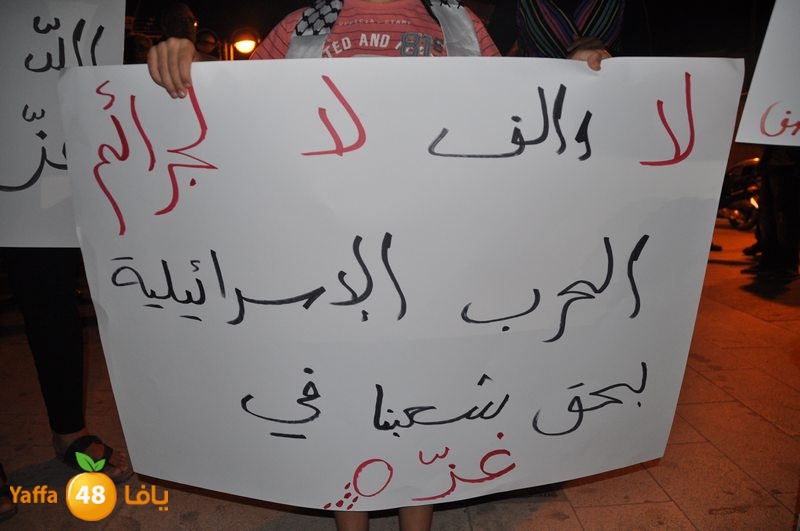 لا والف لا لجرائم
الحرب الإسرائيلية
بحق شعبنا في
غزّة
الله
غزّ
81
Yaffa 48 يافا